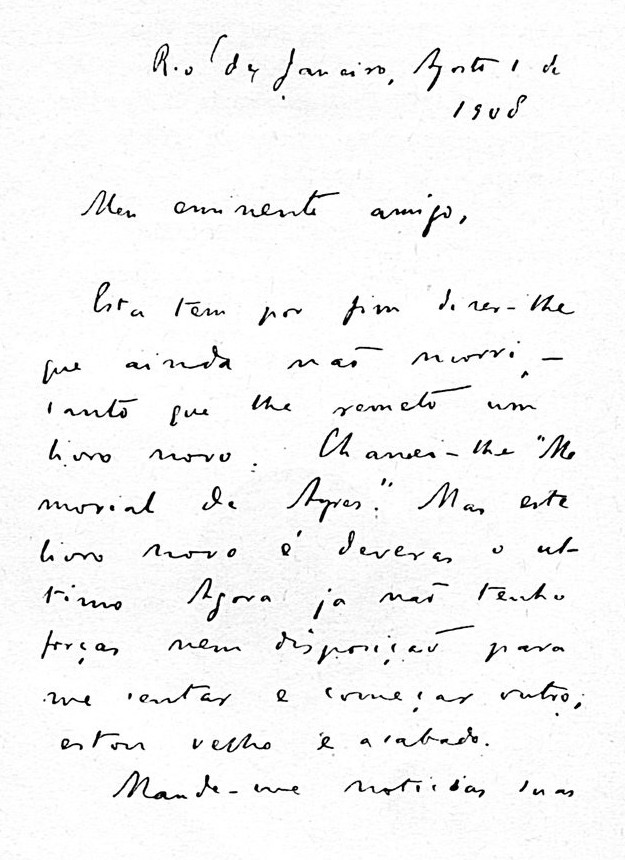 Rio de Janeiro, Agosto 1 de
1908
Meu eminente amigo,
Esta tem por fim dizer-lhe
que ainda não morri, –
tanto que lhe remeto um
livro novo. Chamei-lhe "Me
morial de Ayres." Mas este
livro novo é deveras o ul-
timo Agora ja não tenho
forças nem disposição para
me sentar e começar outro;
estou velho e acabado.
Mande-me noticias suas